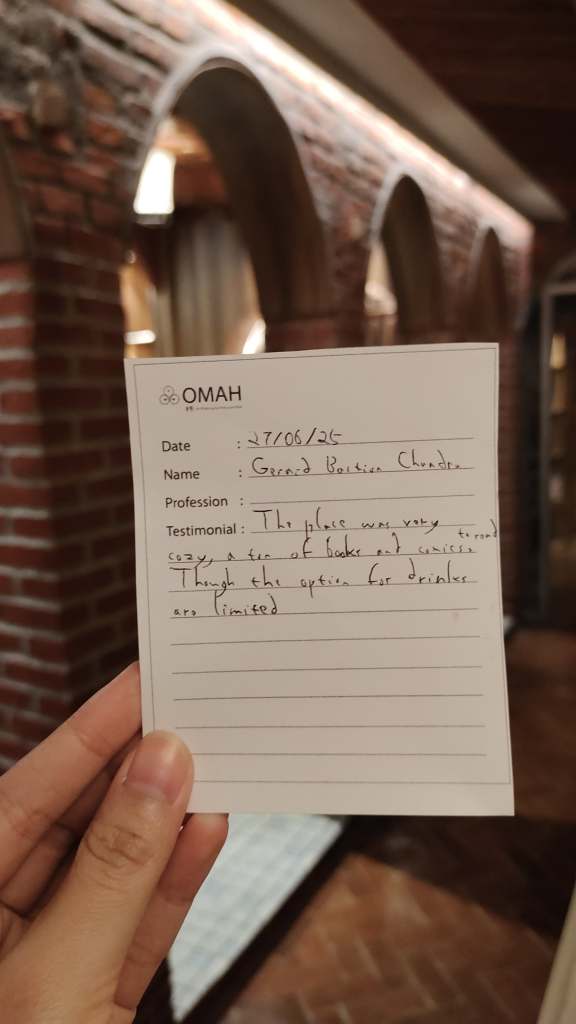 OMAH
Date : 27/06/25
Name : Gerard Bastien Chandra
Profession :
Testimonial : The place was very
cozy, a ton of books and comics to read
Though the option for drinks
are limited